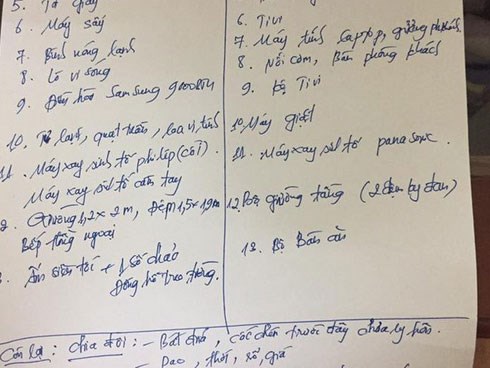 5. Tủ giày
6. Máy sấy
7. Bình nóng lạnh
8. Lò vi sóng
9. Điều hòa Samsung 9000BTU
10. Tủ lạnh, quạt trần, loa vi tính
11. Máy xay sinh tố philip (cối)
Máy xay sinh tố cầm tay
2. Giường 1,2 x 2m, Đệm 1,5 x 1,9m
Bếp hồng ngoại
Ấm siêu tốc + 1 số chảo
Đồng hồ treo tường.
6. Tivi
7. Máy tính laptop, giường
8. Nồi cơm, Bàn phòng khách
9. Kệ Tivi
10. Máy giặt
11. Máy xay sinh tố panasonic.
12. Bộ giường tầng (2 đệm ly đan)
13. Bộ Bàn ăn
Còn lại: chia đôi: - Bát đĩa, cốc chén trước đây chưa ly hôn.
- Dao, thớt, rổ, giá